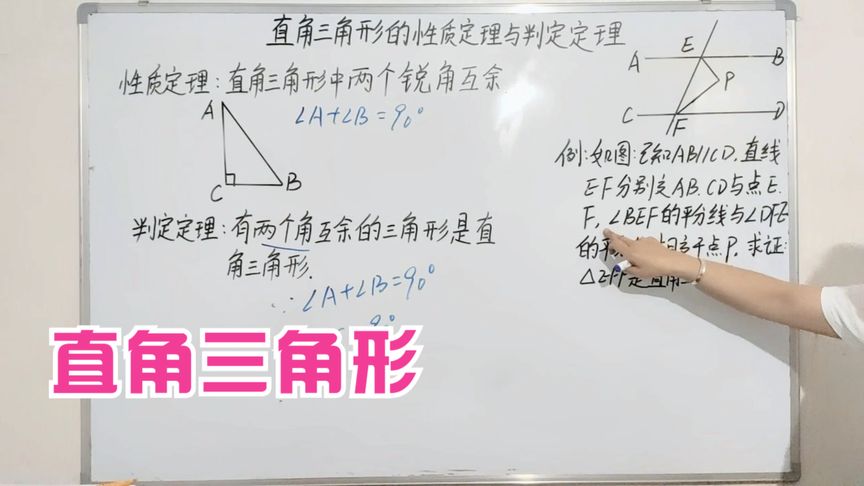 直角三角形的性质定理与判定定理
性质定理:直角三角形中两个锐角互余
∠A+∠B=90°
A
C
B
判定定理:有两个角互余的三角形是直
角三角形.
∵∠A+∠B=90°
90°
直角三角形
E
A
B
P
C
D
F
例:如图:已知AB//CD.直线
EF分别交AB.CD与点E.
F,∠BEF的平分线与∠DFE
的平 相交于点P.求证:
△EPF是直角